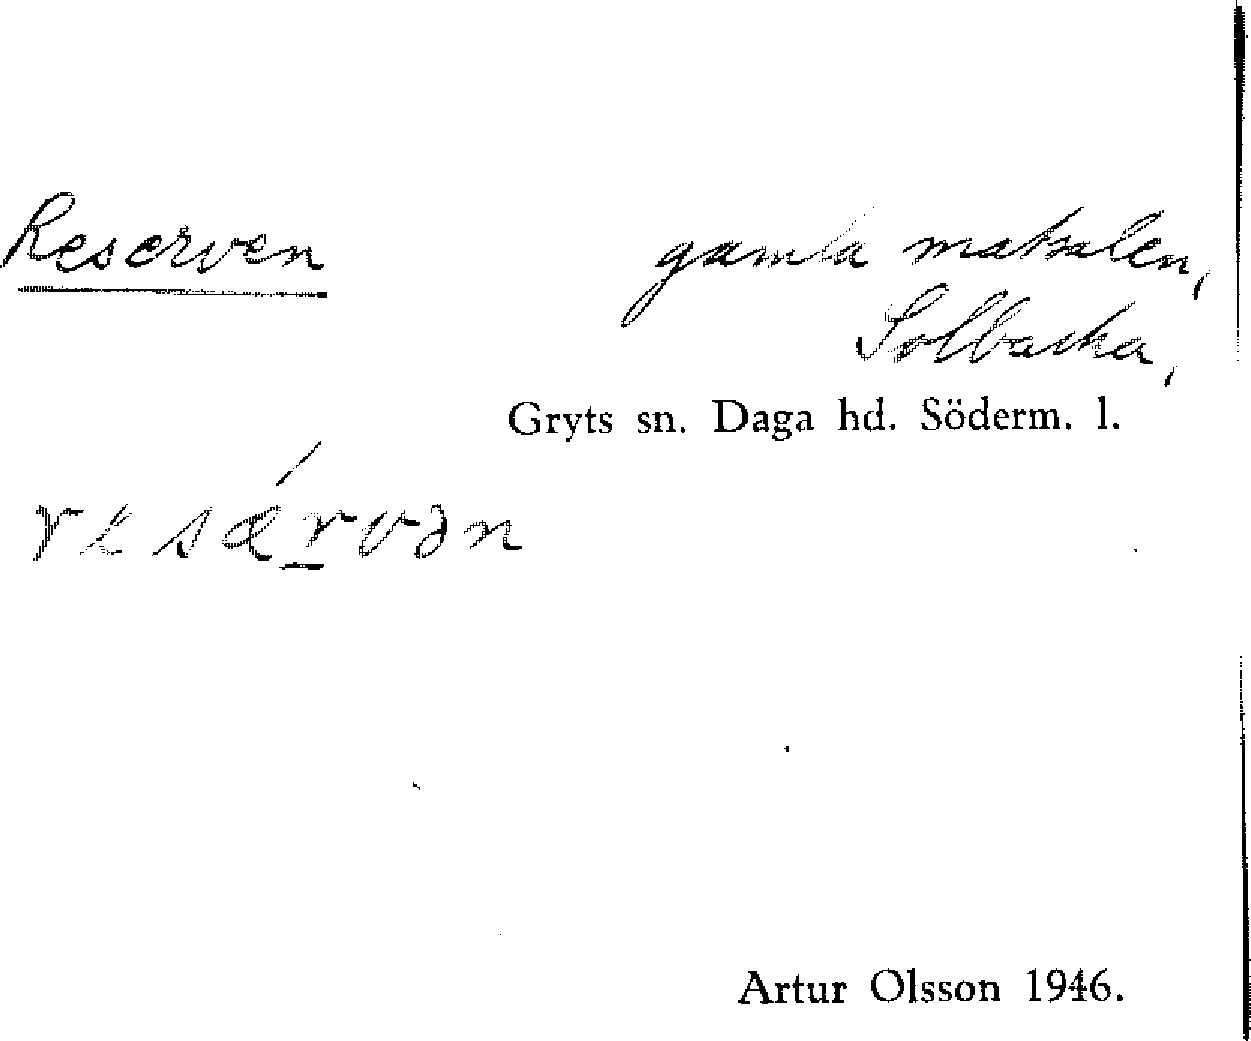 Reserven gamla matsalen,
Solbacka,
Gryts sn. Daga hd. Söderm. l.
Artur Olsson 1946.